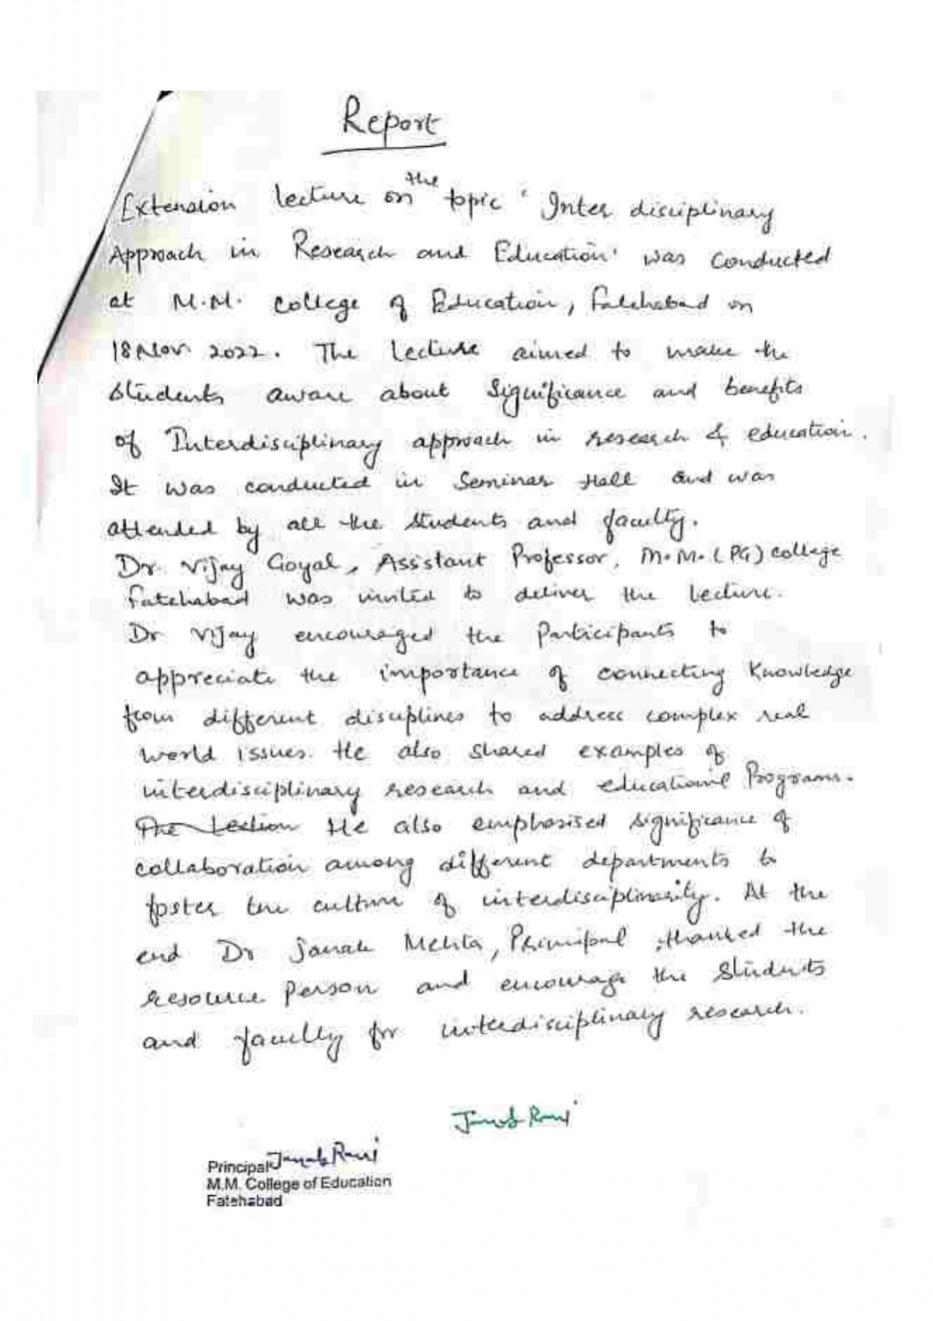 Report
Extension lecture on the topic 'Inter disciplinary
Approach in Research and Education' was conducted
at M.M. College of Education, Fatehabad on
18 Nov. 2022. The Lecture aimed to make the
Students aware about Significance and benefits
of Interdisciplinary approach in research & education.
It was conducted in Seminar Hall and was
attended by all the students and faculty.
Dr. Vijay Goyal, Assistant Professor, M.M. (PG) college
Fatehabad was invited to deliver the lecture.
Dr Vijay encouraged the Participants to
appreciate the importance of connecting Knowledge
from different disciplines to address complex real
world issues. He also shared examples of
interdisciplinary research and educational Programs.
The Lection He also emphasised significance of
collaboration among different departments to
foster the culture of interdisciplinarity. At the
end Dr Janak Mehta, Principal, thanked the
resource person and encourage the Students
and faculty for interdisciplinary research.
Janak Rani
Principal Janak Rani
M.M. College of Education
Fatehabad